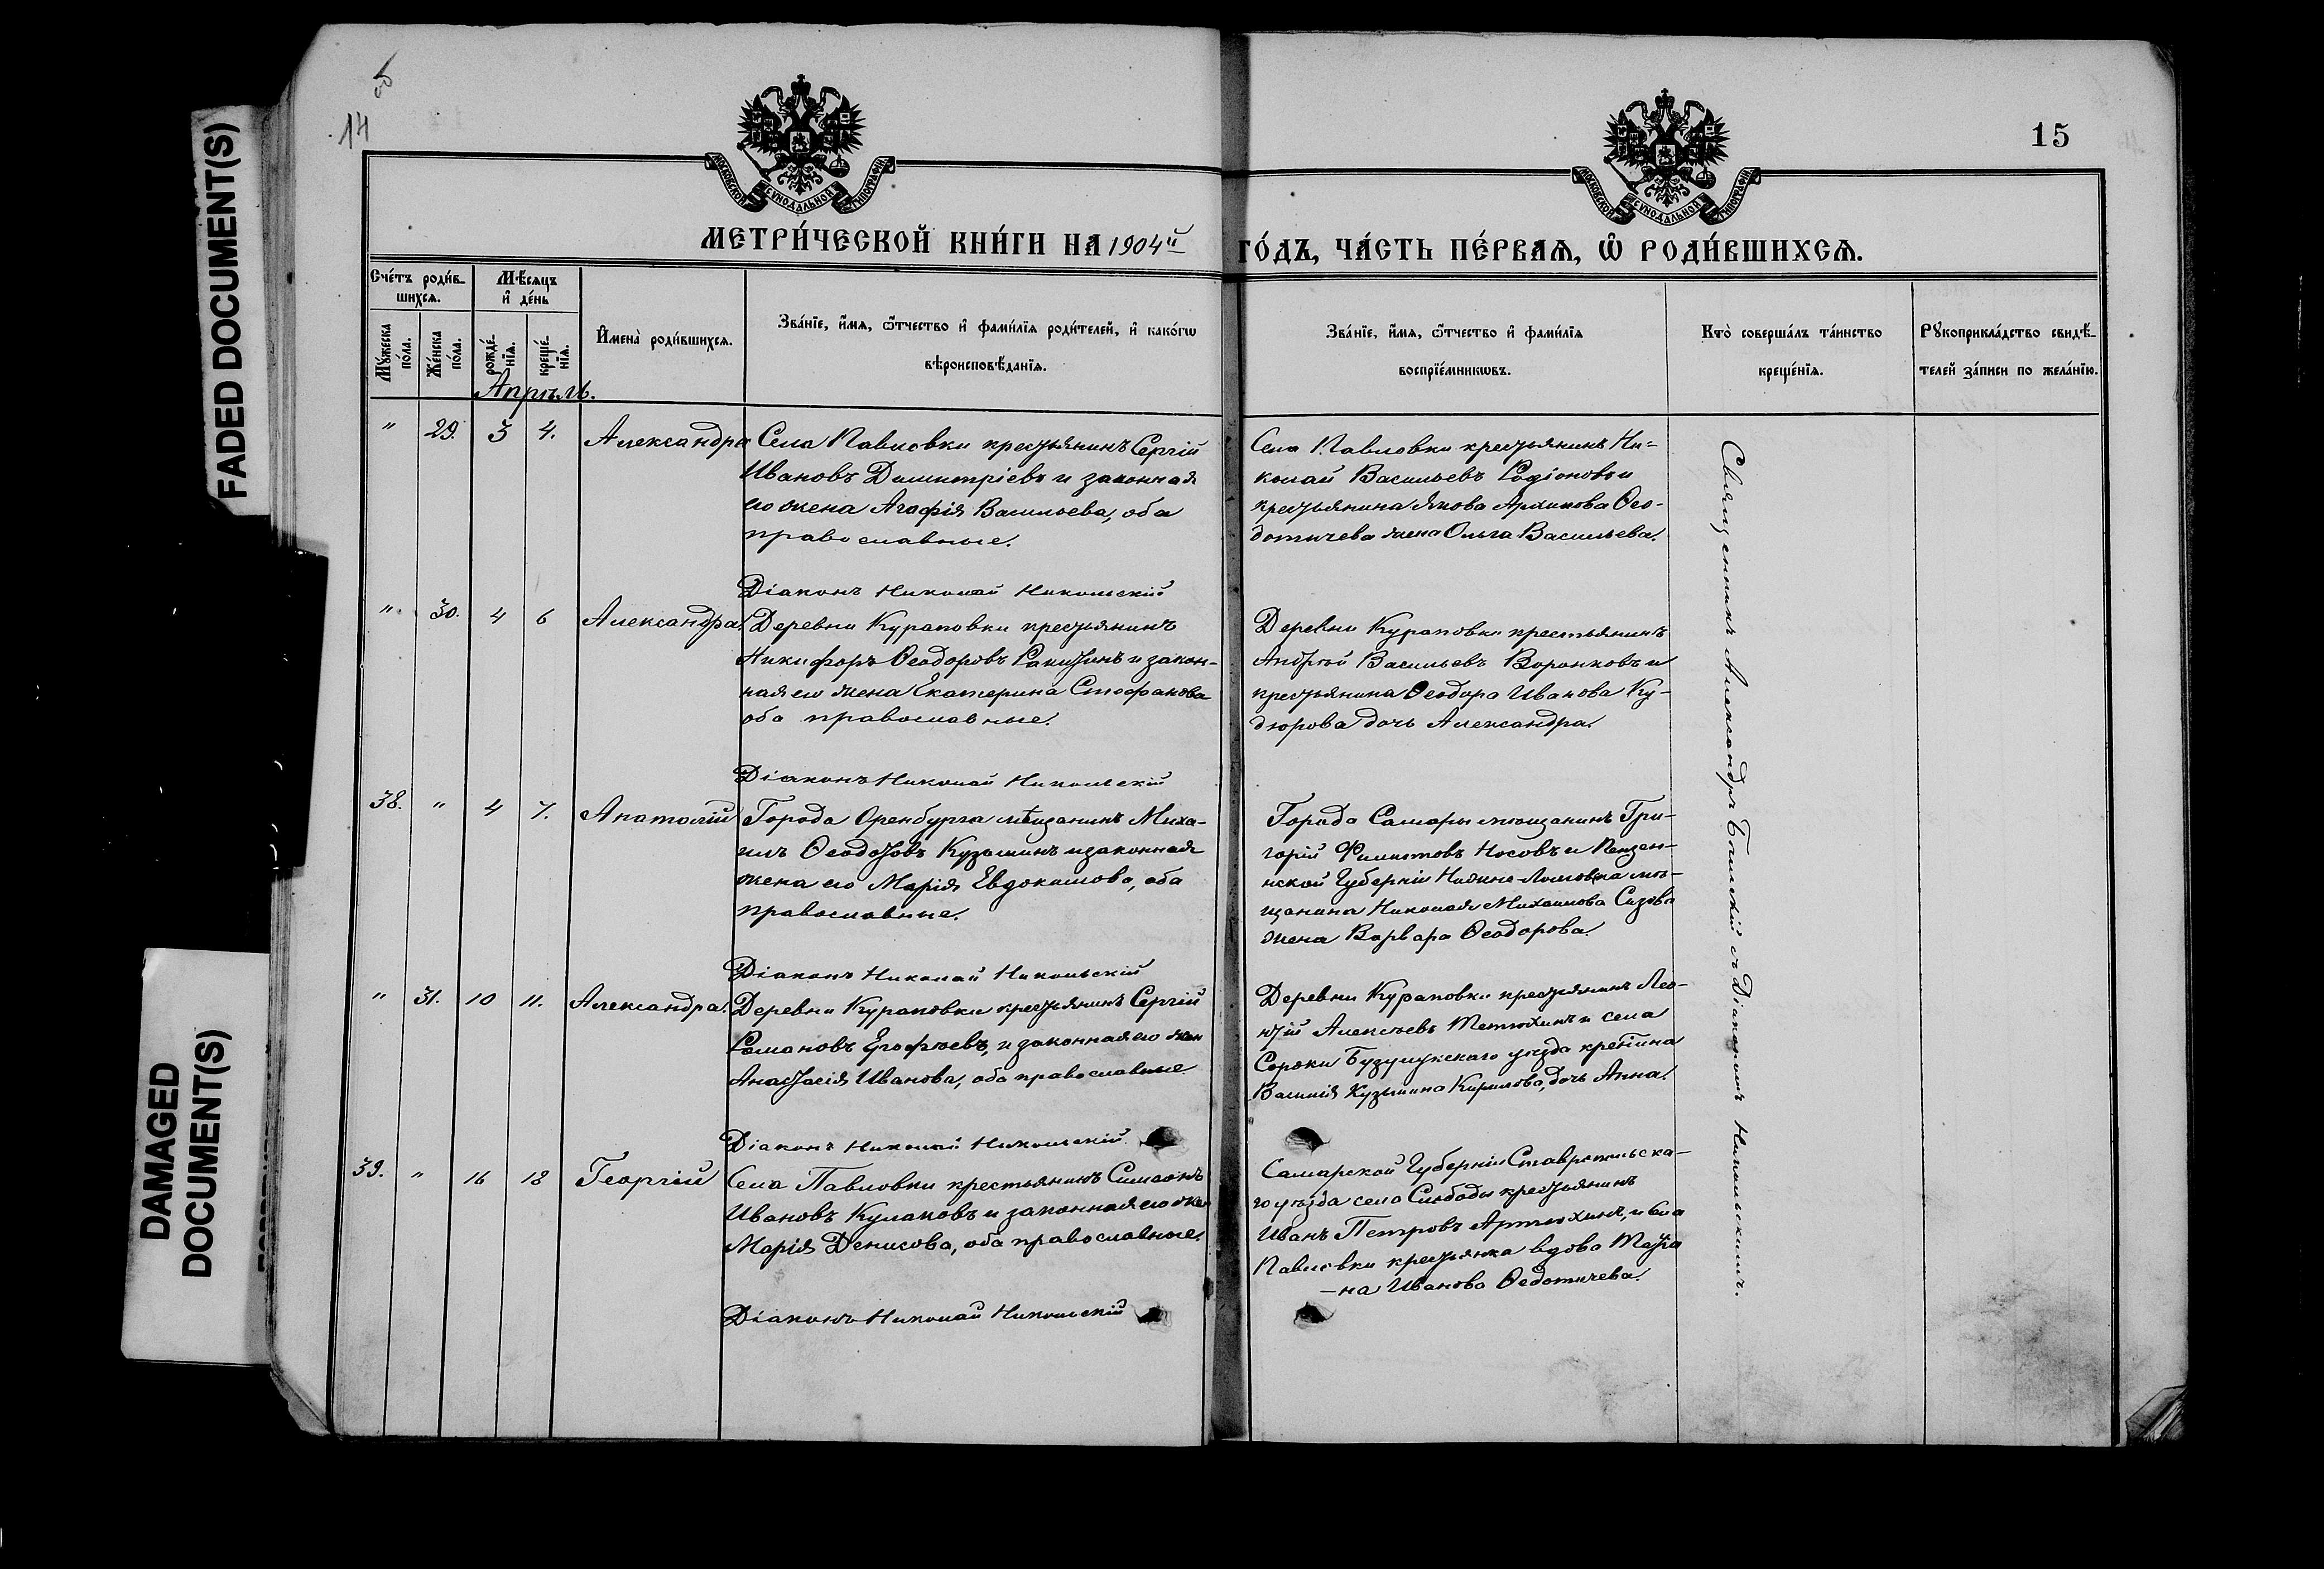 FADED DOCUMENT(S)
DAMAGED
DOCUMENT(S)
14
об
15
МОСКОВСКОЙ СѴНОДАЛЬНОЙ ТИПОГРАФІИ
МОСКОВСКОЙ СѴНОДАЛЬНОЙ ТИПОГРАФІИ
МЕТРИ́ЧЕСКОЙ КНИ́ГИ НА 1904й ГО́ДЪ, ЧА́СТЬ ПЕ́РВАѦ, Ѿ РОДИ́ВШИХСѦ.
Сче́тъ роди́в-
шихсѧ.
Мꙋ́жеска
по́ла.
Же́нска
по́ла.
Мѣ́сѧцъ
и҆ де́нь
рожде́-
нїѧ.
креще́-
нїѧ.
И҆мена̀ роди́вшихсѧ.
Зва́нїе, и҆́мѧ, ѻ҆́тчество и҆ фами́лїѧ роди́телей, и҆ како́гѡ
вѣроисповѣ́данїѧ.
Зва́нїе, и҆́мѧ, ѻ҆́тчество и҆ фами́лїѧ
воспрїе́мникѡвъ.
Кто̀ соверша́лъ та́инство
креще́нїѧ.
Рꙋкоприкла́дство свидѣ́-
телей за́писи по жела́нїю.
Апрѣль.
" 29. 3 4. Александра
Села Павловки крестьянинъ Сергій
Ивановъ Димитріевъ и законная
его жена Агафія Васильева, оба
православные.
Діаконъ Николай Никольскій
Села Павловки крестьянинъ Ни-
колай Васильевъ Родіоновъ и
крестьянина Якова Архипова Ѳео-
дотичева жена Ольга Васильева.
" 30. 4 6 Александра.
Деревни Кураповки крестьянинъ
Никифоръ Ѳеодоровъ Ракитинъ и закон-
ная его жена Екатерина Стефанова
оба православные.
Діаконъ Николай Никольскій
Деревни Кураповки крестьянинъ
Андрей Васильевъ Воронковъ и
крестьянина Ѳеодора Иванова Ку-
дюрова дочь Александра.
38. " 4 7. Анатолій
Города Оренбурга мѣщанинъ Миха-
илъ Ѳеодотовъ Кузьминъ и законная
жена его Марія Евдокимова, оба
православные.
Діаконъ Николай Никольскій
Города Самары мѣщанинъ Гри-
горій Филиповъ Носовъ и Пензен-
нской Губерніи Нижне-Ломовка мѣ-
щанина Николая Михаилова Сизова
жена Варвара Ѳеодорова.
" 31. 10 11. Александра.
Деревни Кураповки крестьянинъ Сергій
Романовъ Ерофѣевъ, и законная его жен
Анастасія Иванова, оба православные
Діаконъ Николай Никольскій
Деревни Кураповки крестьянинъ Лео-
нтій Алексѣевъ Тетюхинъ и села
Сороки Бузулукскаго уѣзда крестіина
Василія Кузьмина Кирилова, дочь Анна.
39. " 16 18 Георгій
Села Павловки крестьянинъ Симеонъ
Ивановъ Кулаковъ и законная его жен
Марія Денисова, оба православные.
Діаконъ Николай Никольскій
Самарской Губерніи Ставропольска-
го уѣзда села Слободы крестьянинъ
Иванъ Петровъ Артюхинъ, и села
Павловки крестьянка вдова Татіа
-на Иванова Ѳедотичева.
Священникъ Александръ съ Діакономъ Никольскимъ.